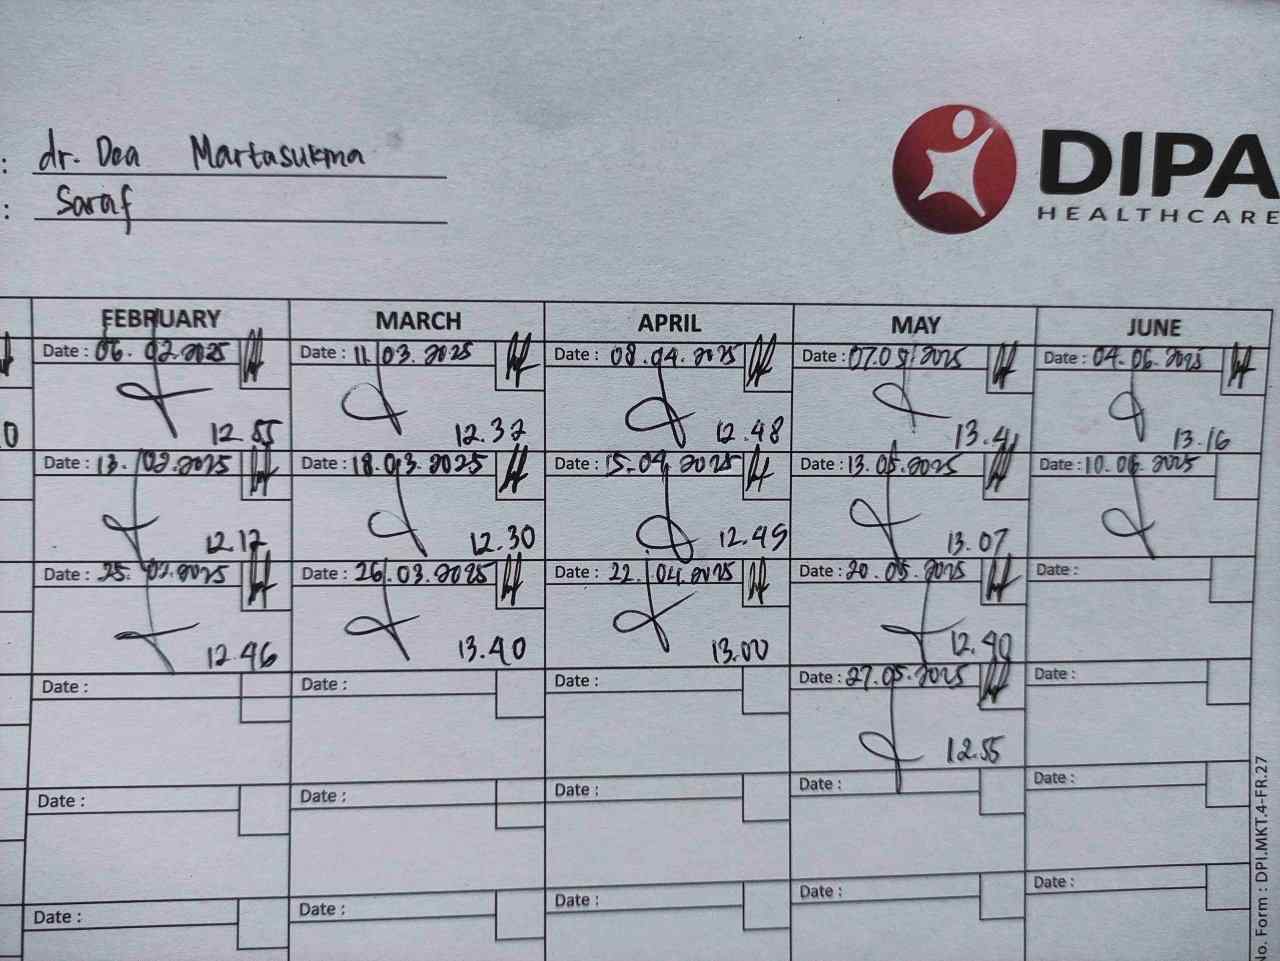 : dr. Dea Martasukma
: Saraf
DIPA
HEALTHCARE
FEBRUARY MARCH APRIL MAY JUNE
Date : 06. 02. 2025 Date : 11 03. 2025 Date : 08. 04. 2025 Date : 07.05.2025 Date : 04. 06. 2025
0 12.55 12.32 12.48 13.41 13.16
Date : 13. 02. 2025 Date : 18. 03. 2025 Date : 15. 04. 2025 Date : 13. 05. 2025 Date : 10. 06. 2025
12.17 12.30 12.45 13.07
Date : 25. 02. 2025 Date : 26. 03. 2025 Date : 22. 04. 2025 Date : 20. 05. 2025 Date :
12.46 13.40 13.00 12.40
Date : Date : Date : Date : 27. 05. 2025 Date :
12.55
Date : Date : Date : Date : Date :
Date : Date : Date : Date : Date :
No. Form : DPI.MKT.4-FR.27